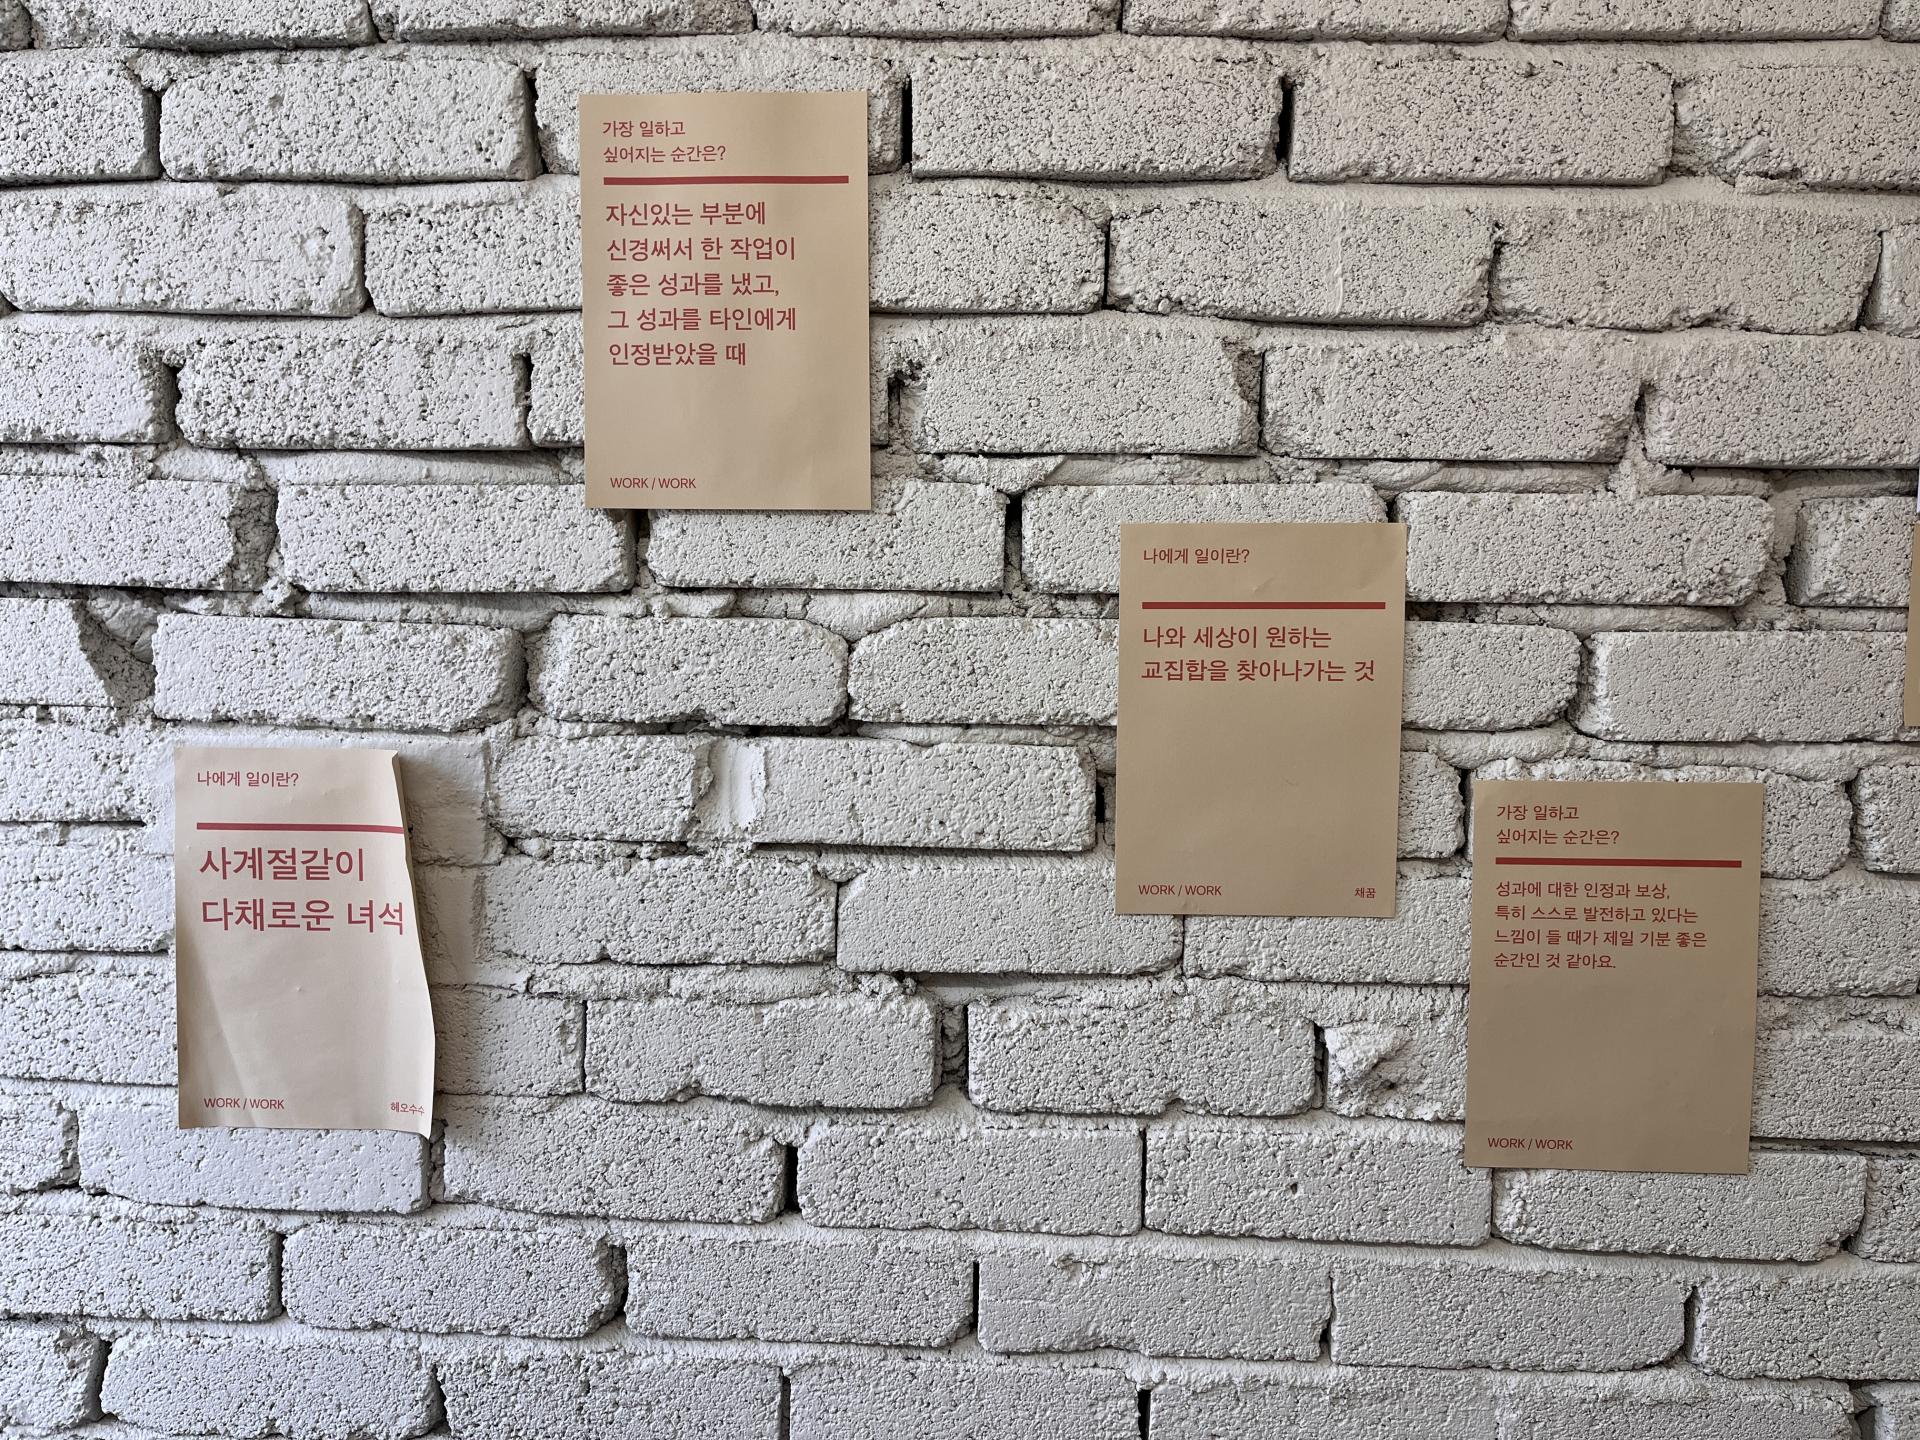 가장 일하고
싶어지는 순간은?
자신있는 부분에
신경써서 한 작업이
좋은 성과를 냈고,
그 성과를 타인에게
인정받았을 때
WORK / WORK
나에게 일이란?
나와 세상이 원하는
교집합을 찾아나가는 것
WORK / WORK
채꿈
나에게 일이란?
사계절같이
다채로운 녀석
WORK / WORK
헤오수수
가장 일하고
싶어지는 순간은?
성과에 대한 인정과 보상,
특히 스스로 발전하고 있다는
느낌이 들 때가 제일 기분 좋은
순간인 것 같아요.
WORK / WORK